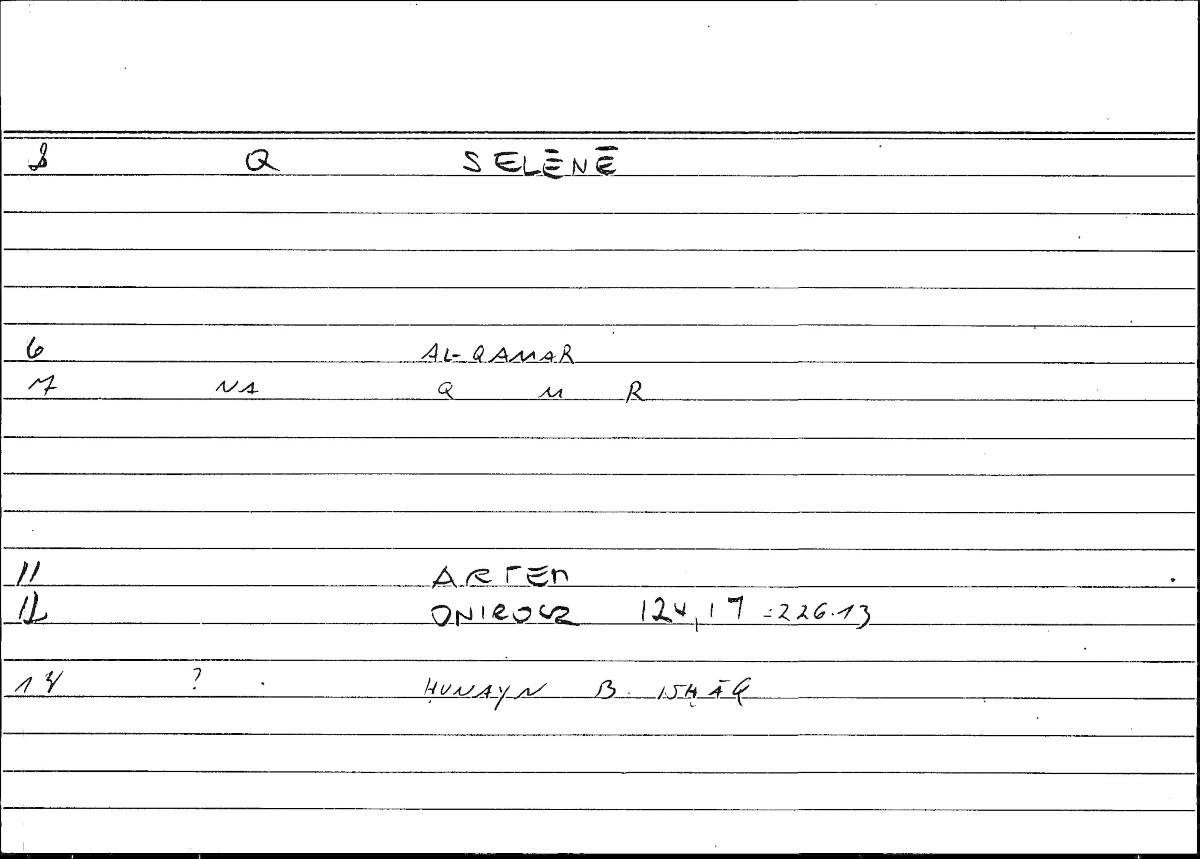 1 Q SELĒNĒ
6 AL-QAMAR
7 NA Q M R
11 ARTEM
12 ONIROCR 124,17 = 226.13
14 ? ḤUNAYN B. ISḤĀQ